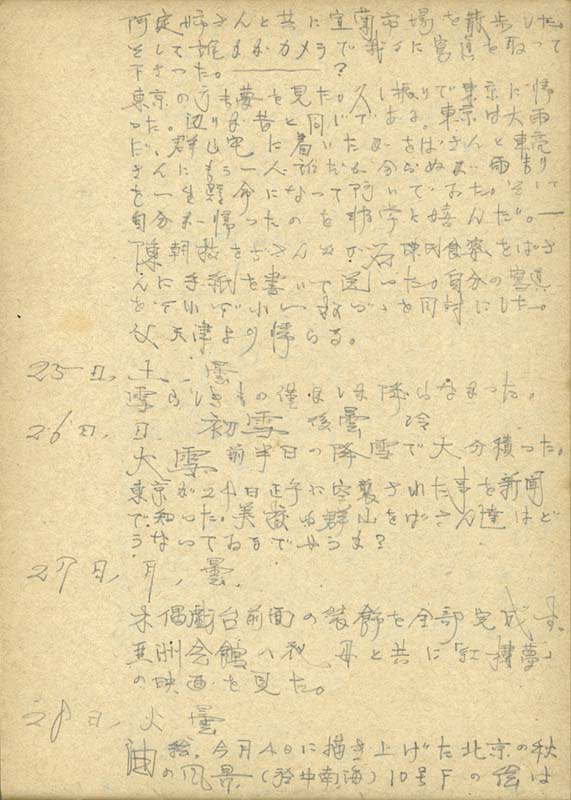 何定姉さんと共に宣蘭市場を散歩した。
そして誰かがカメラで我々に寫真を取って
下さった。?
東京の方も夢を見た。久し振りで東京に帰
った。辺りは昔と同じである。東京は大雨
だ。群山宅に着いたが をばさんと車売
さんにもう一人誰だか分らぬが雨 り
を一生懸命になって ていでおた。そして
自分が帰ったのを 嬉んだ。—
陳朝枝をぢさんが 石陳氏食寮をばさ
んに手紙を書いて送った。自分の寫真
を 同封にした。
父天津より帰らる。
25日、土、曇
雪らしきもの僅かしか降らなかった。
26日、日 初雪 後曇 冷
大雪 前半日の降雪で大分積った。
東京が24日正子に空襲された事を新聞
で知った。美 や群山をばさん達はど
うなっておるでせうか?
27日、月、曇、
木偶戯台前面の装飾を全部完成す。
亜洲会館へ 母と共に「紅樓夢」
の映画を見た。
28日、火 曇
油絵、今月4日に描き上げた北京の秋
の風景(於中南海)10号Fの絵は